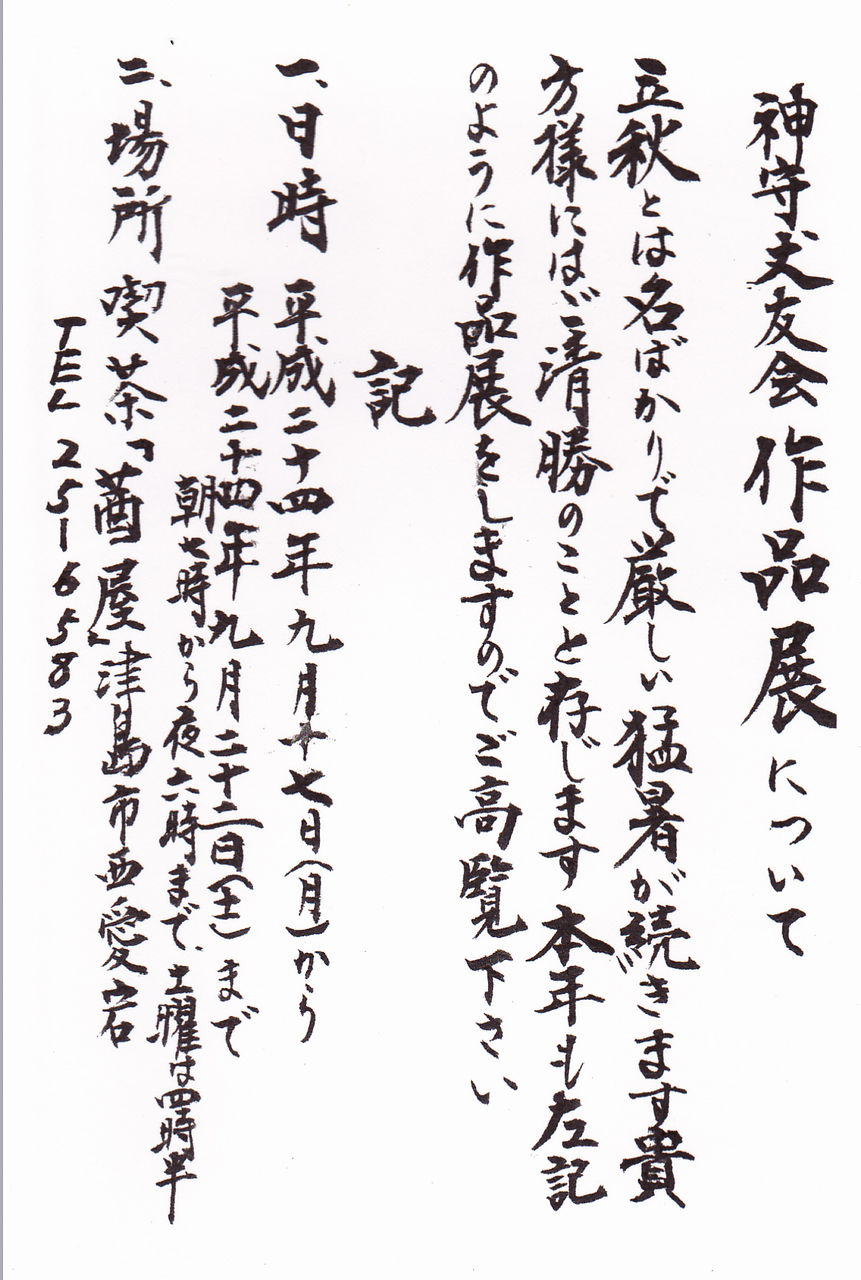 神守犬友会作品展について
立秋とは名ばかりで厳しい猛暑が続きます貴
方様にはご清勝のことと存じます本年も左記
のように作品展をしますのでご高覧下さい
記
一、日時 平成二十四年九月十七日(月)から
平成二十四年九月二十二日(土)まで
朝七時から夜六時まで、土曜は四時半
二、場所 喫茶「茜屋」津島市西愛宕
TEL 25-6583